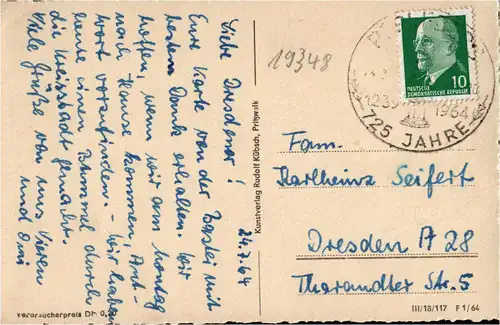 Liebe Dresdener!
24.7.64
Eure Karte von der Bastei mit
bestem Dank erhalten. Wir
hoffen, wenn wir am Montag
nach Hause kommen, Ant-
wort vorzufinden. – Wir haben
heute einen Bummel durch
die Kreisstadt gemacht.
Viele Grüße von uns Vieren
und Omi
Verbraucherpreis DM 0,
Kunstverlag Rudolf Kübsch, Pritzwalk
19348
1239
1964
725 JAHRE
10
DEUTSCHE
DEMOKRATISCHE REPUBLIK
Fam.
Karlheinz Seifert
Dresden A 28
Tharandter Str. 5
III/18/117 F 1/64